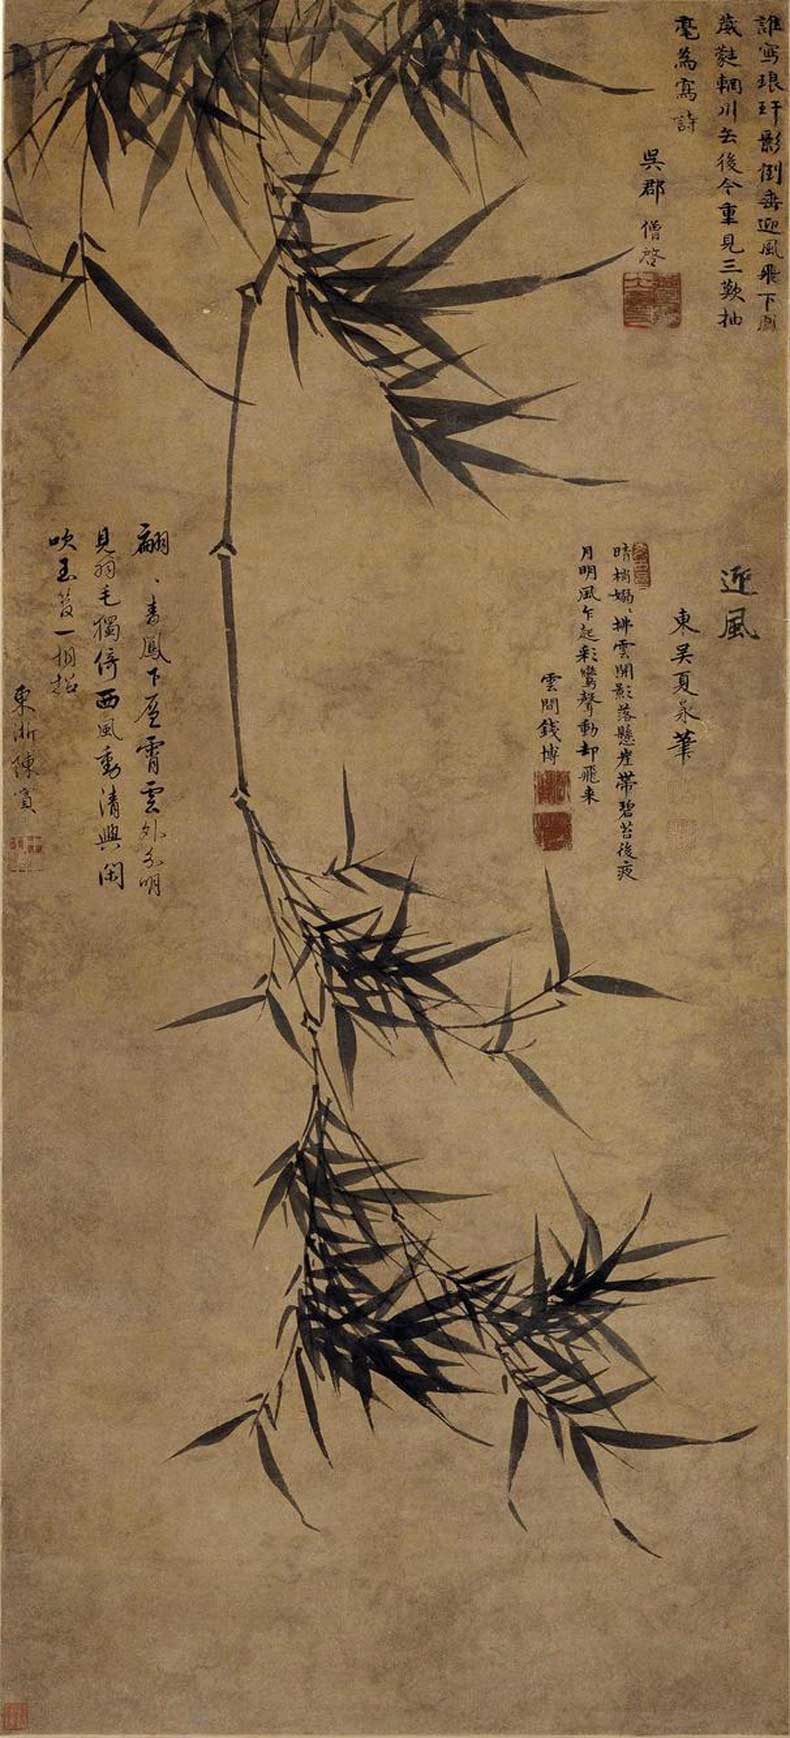 誰寫琅玕影倒垂迎風飛下鳳
葳蕤輞川去後今重見三歎抽
毫為寫詩
吳郡 僧啓
迎風
東吳夏㫤筆
晴梢嫋嫋拂雲開影落懸崖帶碧苔後夜
月明風乍起彩鸞聲動却飛來
雲間錢博
翩翩青鳳下層霄雲外分明
見羽毛獨倚西風動清興閑
吹玉笈一相招
東浙陳賓